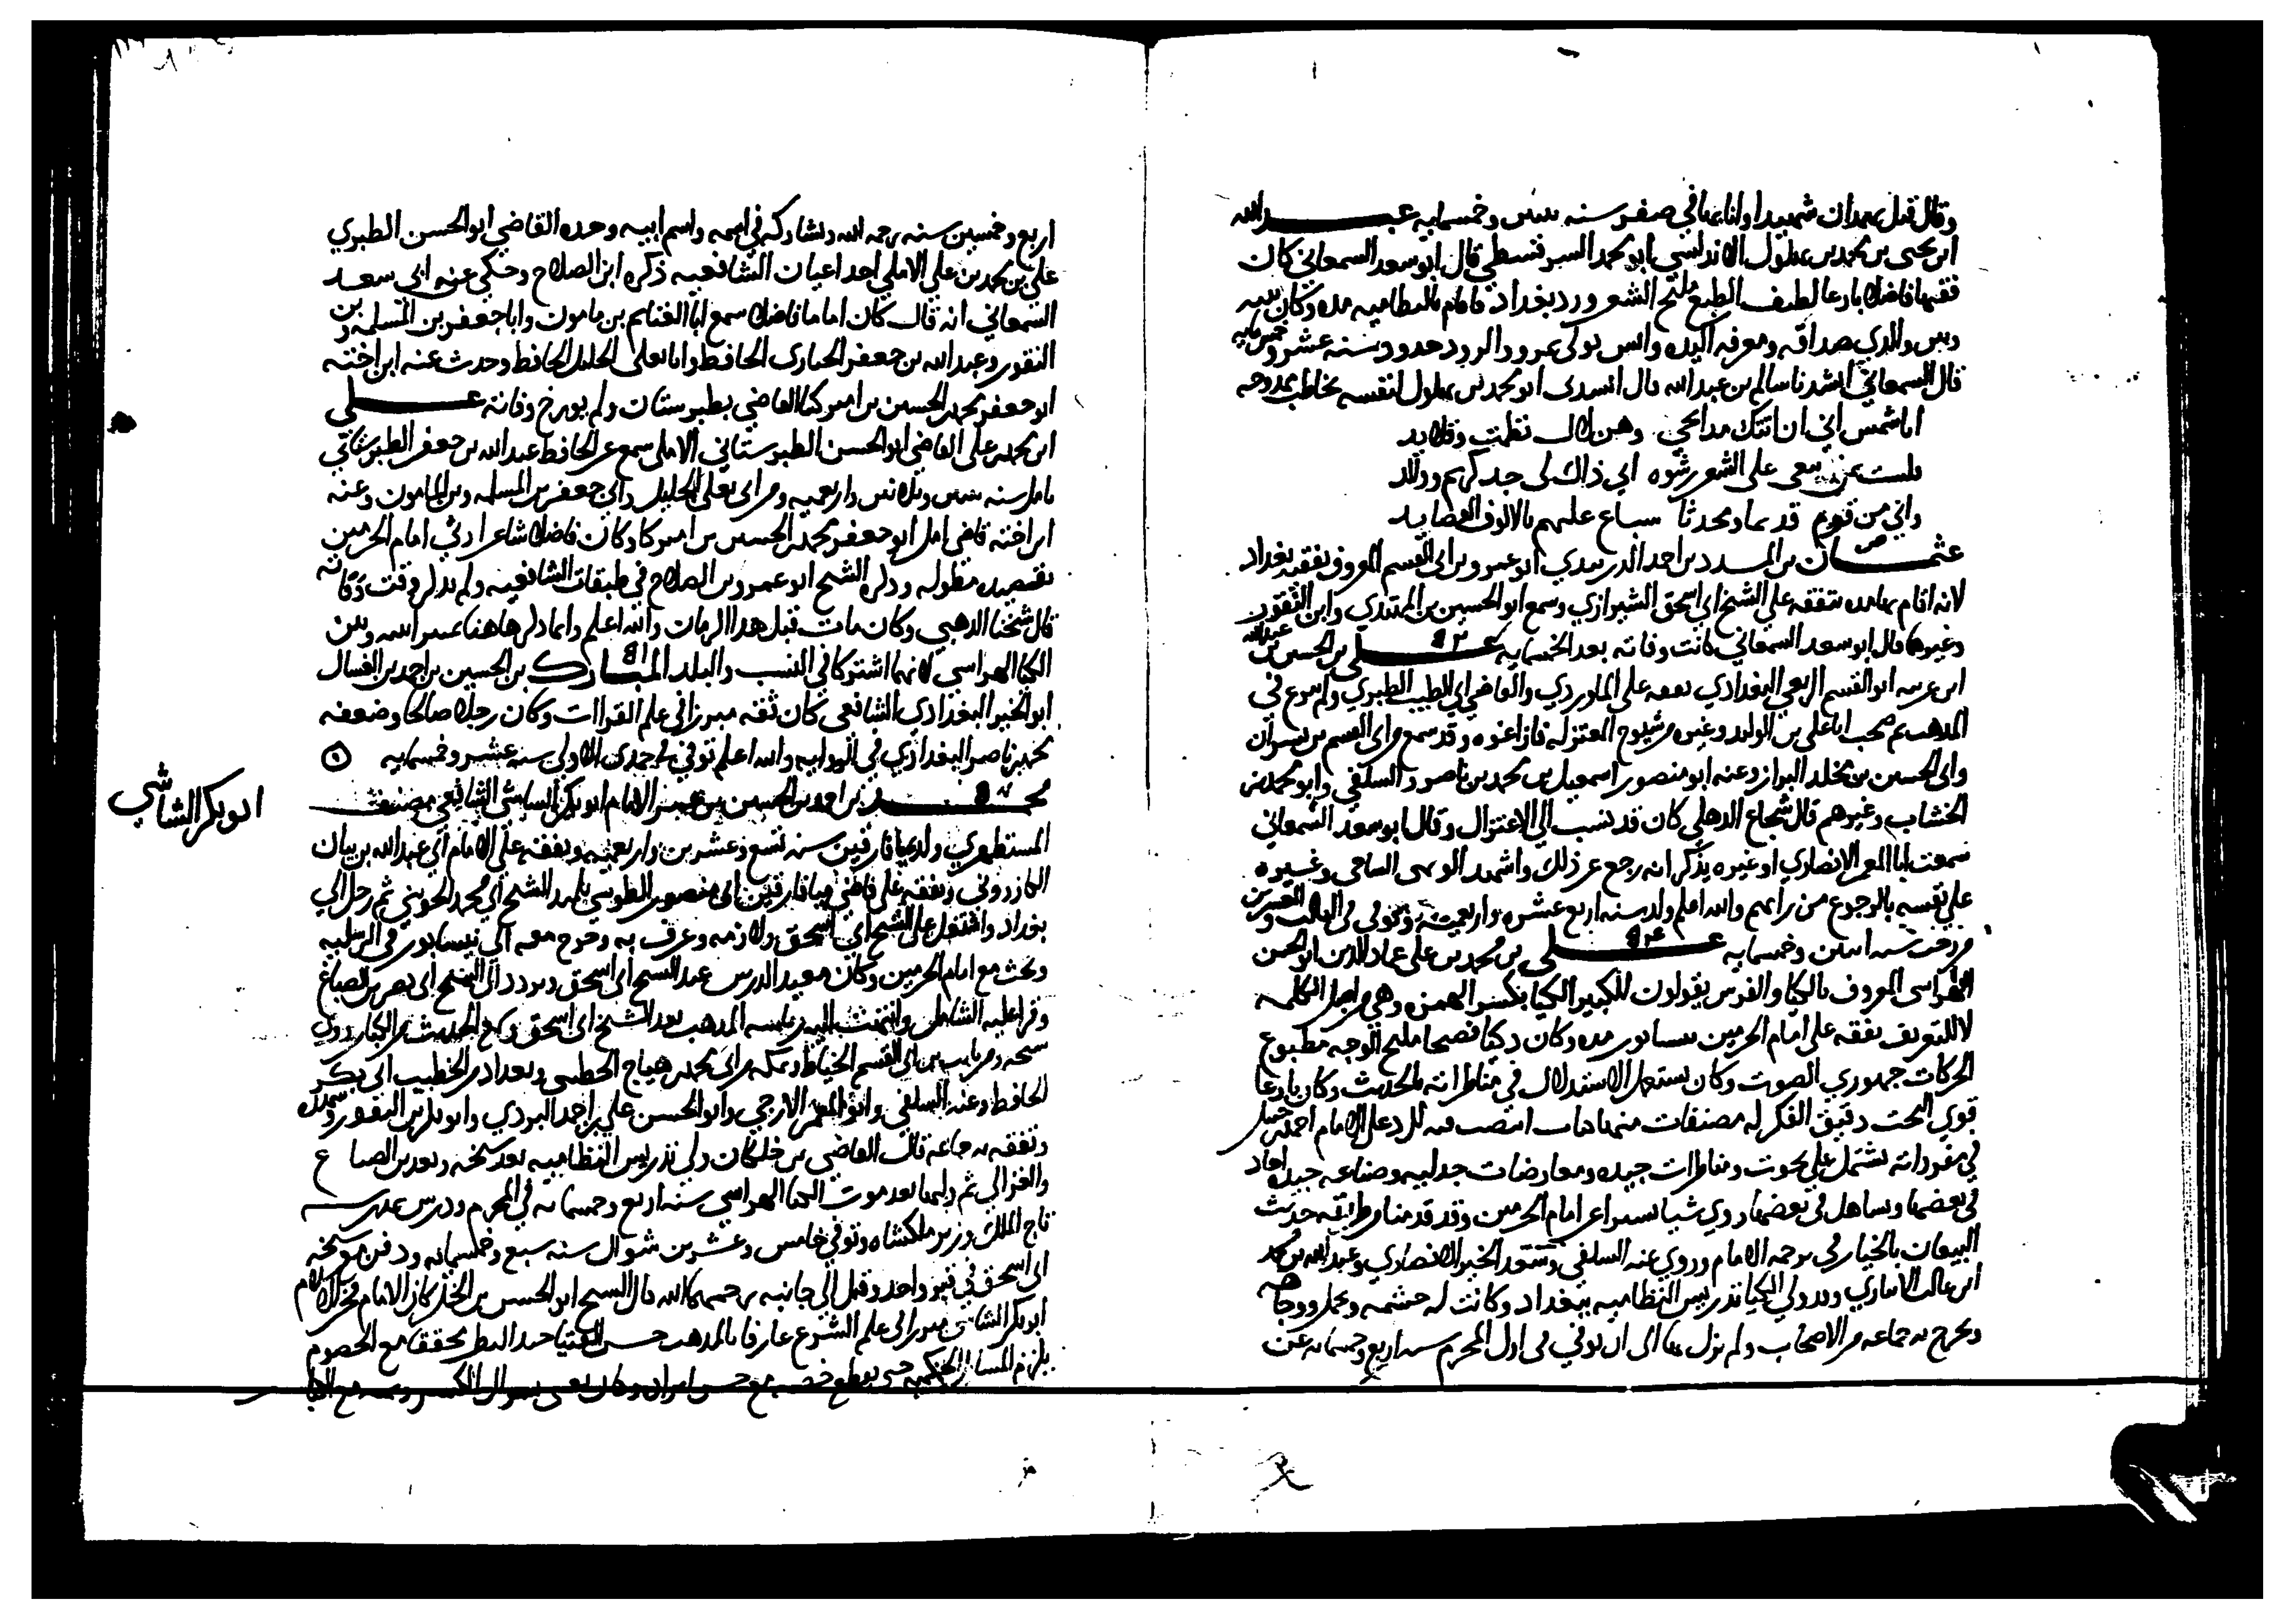 وقال قبل بهمدان شهيدا وانا بها في صفر سنه ست وخمسمايه عبد الله
ابن يحيى بن محمد بن بهلول الاندلسي ابو محمد السرقسطي قال ابو سعد السمعاني كان
فقيها فاضلا بارعا لطيف الطبع مليح الشعر ورد بغداد فاقام بالنظاميه مده وكان بينه
وبين والدي صداقه ومعرفه اكيده بمرو الرود حدود سنه عشر وخمس مايه
قال السمعاني انشدنا سالم بن عبد الله قال انشدني ابو محمد بن بهلول لنفسه يخاطب ممدوحه
ايا شمس اني ان اتتك مدايحي وهن لال نظمت وقلايد
فلست بمن يبغي على الشعر رشوه ابي ذاك لي جد كريم ووالد
واني من قوم قديما ومحدثا تباع عليهم بالالوف القصايد
عثمان بن المسدد بن احمد الدربندي ابو عمرو بن ابي القسم المعروف بفقيه بغداد
لانه اقام بها مده تفقه على الشيخ ابي اسحق الشيرازي وسمع ابو الحسين بن المهتدي وابن النقور
وغيرهما قال ابو سعد السمعاني كانت وفاته بعد الخمسمايه علي بن الحسين بن عبد الله
ابن عريبه ابو القسم الربعي البغدادي تفقه على الماوردي والقاضي ابي الطيب الطبري ولم يبرع في
المذهب ثم صحب ابا علي بن الوليد وغيره من شيوخ المعتزله وقد سمع من ابي القسم بن بشران
وابي الحسين بن مخلد البزاز وعنه ابو منصور اسمعيل بن محمد بن ناصر والسلفي وابو محمد بن
الخشاب وغيرهم قال شجاع الذهلي كان قد نسب الى الاعتزال وقال ابو سعد السمعاني
سمعت ابا المعمر الانصاري او غيره يذكر انه رجع عن ذلك واشهد الساجي وغيره
على نفسه بالرجوع من رايهم والله اعلم ولد سنه اربع عشره واربعميه وتوفي في الثالث والعشرين
من رجب سنه اثنتين وخمسمايه علي بن محمد بن علي عماد الدين ابو الحسن
الهراسي المعروف بالكيا والفرس يقولون للكبير الكيا بكسر الهمزه وهي من اصل الكلمه
لا للتعريف تفقه على امام الحرمين بنيسابور مده وكان ذكيا فصيحا مليح الوجه مطبوع
الحركات جهوري الصوت وكان يستعمل الاستدلال في مناظراته بالحديث وكان بارعا
قوي البحث دقيق الفكر له مصنفات منها كتاب انتصب فيه للرد على الامام احمد بن حنبل
في مفرداته يشتمل على بحوث ومناظرات جيده ومعارضات جدليه وصناعه جيده اجاد
في بعضها وتساهل في بعضها روي شيا يسيرا عن امام الحرمين وقد قدمنا من طريقه حديث
البيعان بالخيار في ترجمه الامام وروي عنه السلفي وسعد الخير الانصاري وعبد الله بن محمد
ابن غالب الانباري وولي الكيا تدريس النظاميه ببغداد وكانت له حشمه وتجمل ووجاهه
وتخرج به جماعه من الاصحاب ولم يزل بها الى ان توفي في اول المحرم سنه اربع وخمسمايه عن
اربع وخمسين سنه رحمه الله وشاركه في اسمه واسم ابيه وجده القاضي ابو الحسن الطبري
علي بن محمد بن علي الاملي احد اعيان الشافعيه ذكره ابن الصلاح وحكى عنه ابي سعد
السمعاني انه قال كان اماما فاضلا سمع ابا الغنايم بن مامون وابا جعفر بن المسلمه وبن
النقور وعبد الله بن جعفر الخبازي الحافظ وابا يعلى الخليل الحافظ وحدث عنه ابن اخته
ابو جعفر محمد بن الحسين بن اميركا القاضي بطبرستان ولم يورخ وفاته علي
ابن محمد بن علي القاضي ابو الحسن الطبرستاني الاملي سمع من الحافظ عبد الله بن جعفر الطبرستاني
بامل سنه ست وثلاثين واربعميه ومن ابي يعلى الخليل وابي جعفر بن المسلمه وبن المامون وعنه
ابن اخته قاضي امل ابو جعفر محمد بن الحسين بن اميركا وكان فاضلا شاعرا رثى امام الحرمين
بقصيده مطوله وذكره الشيخ ابو عمرو بن الصلاح في طبقات الشافعيه ولم يذكر وقت وفاته
قال شيخنا الذهبي وكان مات قبل هذا الزمان والله اعلم وانما ذكرها هنا بينه وبين
الكيا الهراسي لانهما اشتركا في النسب والبلد المبارك بن الحسين بن احمد بن الغسال
ابو الخير البغدادي الشافعي كان ثقه مبرزا في علم القراات وكان رجلا صالحا وضعفه
محمد بن ناصر البغدادي في الروايه والله اعلم توفي في جمدى الاولى سنه عشر وخمسمايه
محمد بن احمد بن الحسين بن عمر الامام ابو بكر الشاشي الشافعي مصنف
ابو بكر الشاشي
المستظهري ولد بميافارقين سنه تسع وعشرين واربعميه وتفقه على الامام ابي عبد الله بن بيان
الكازروني وتفقه على قاضي ميافارقين ابي منصور الطوسي تلميذ الشيخ ابي محمد الجويني ثم رحل الى
بغداد واشتغل على الشيخ ابي اسحق ولازمه وعرف به وخرج معه الى نيسابور في الرسليه
وبحث مع امام الحرمين وكان معيد الدرس عند الشيخ ابي اسحق وتردد الى الشيخ ابي نصر بن الصباغ
وقرا عليه الشامل وانتهت اليه رياسه المذهب بعد الشيخ ابي اسحق وسمع الحديث من الكازروني
شيخه ومن ثابت بن ابي القسم الخياط وبمكه من ابي محمد هياج الحطيني وببغداد من الخطيب ابي بكر
الحافظ وعنه السلفي وابو المعمر الازجي وابو الحسن علي بن احمد اليزدي وابو بكر بن النقور وشهده
وتفقه به جماعه قال القاضي بن خلكان ولي تدريس النظاميه بعد شيخه وبعد بن الصباغ
والغزالي ثم وليها بعد موت الكيا الهراسي سنه اربع وخمسمايه في المحرم ودرس بمدرسه
تاج الملك وزير ملكشاه وتوفي خامس وعشرين شوال سنه سبع وخمسمايه ودفن مع شيخه
ابي اسحق في قبر واحد وقيل الى جانبه رحمهما الله قال الشيخ ابو الحسن بن الخل كان الامام فخر الاسلام
ابو بكر الشاشي مبرزا في علم الشرع عارفا بالمذهب حسن الفتيا جيد النظر محققا مع الخصوم
يلزم المسايل الحكميه حتى يقطع خصمه مع حسن ايراد وكان يعنى بسوال الكبير